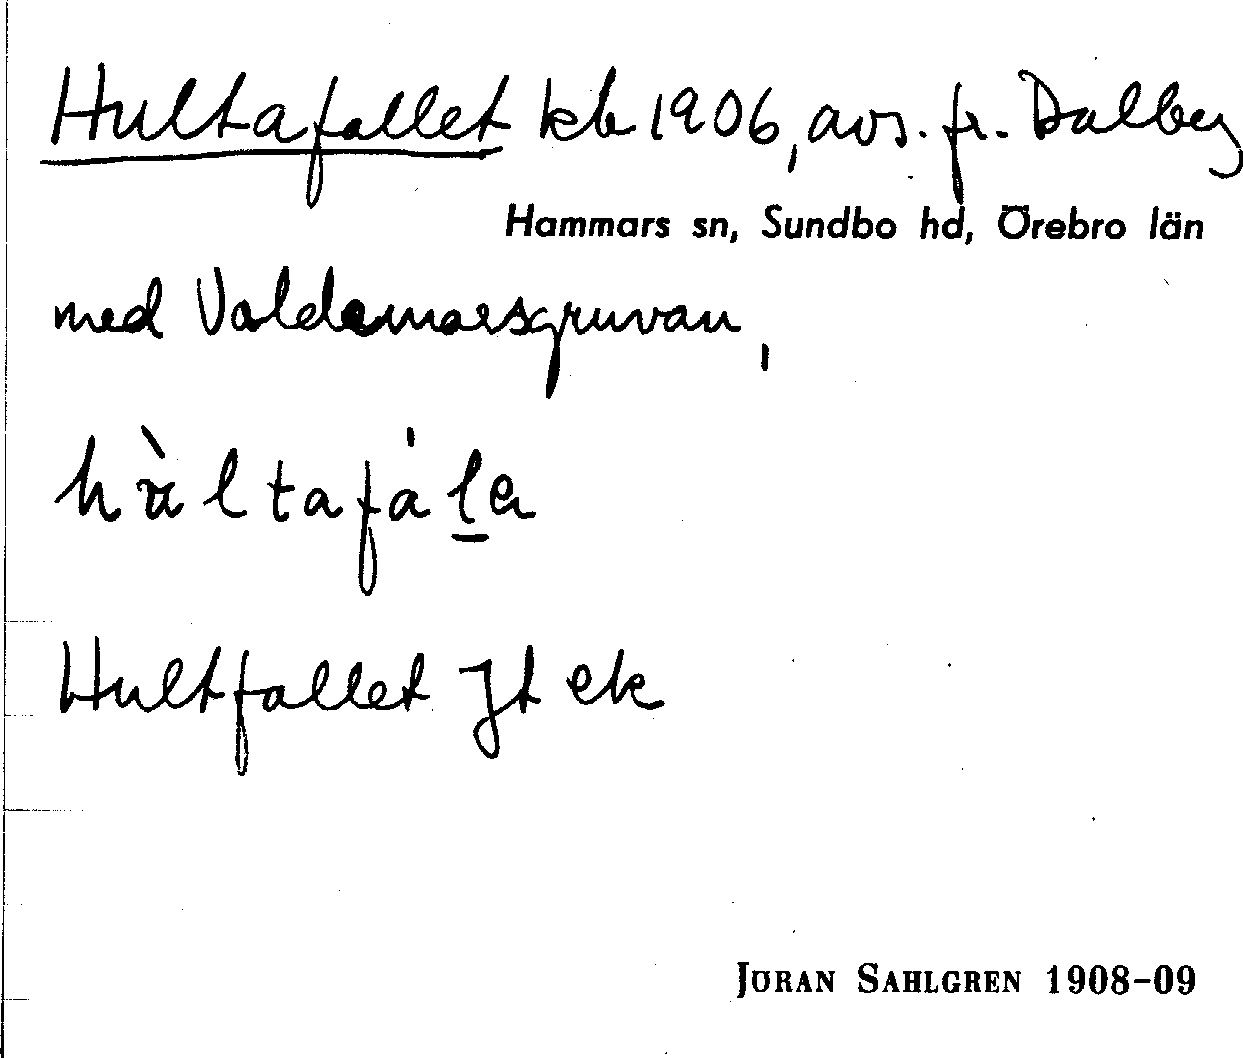 Hultafallet kb 1906, avs. fr. Dalby
Hammars sn, Sundbo hd, Örebro län
med Valdemarsgruvan,
Hultfallet Jt ek
JÖRAN SAHLGREN 1908-09